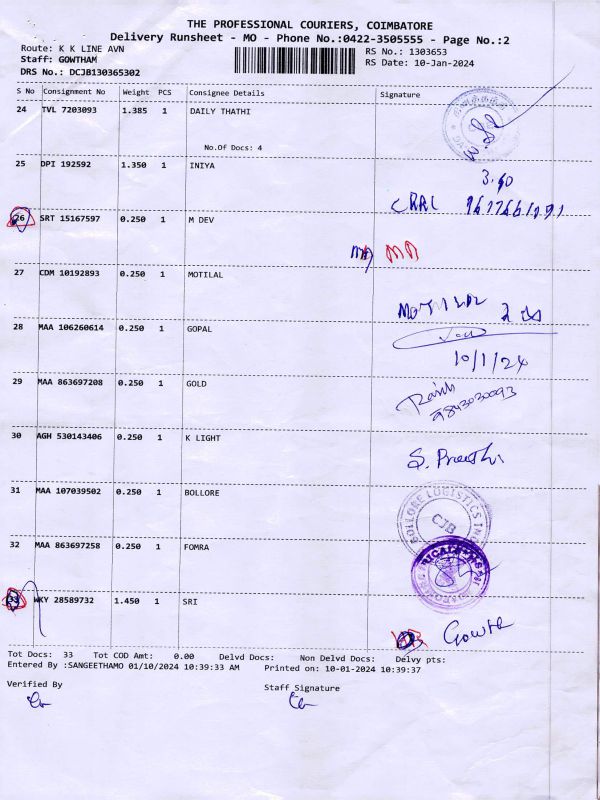 THE PROFESSIONAL COURIERS, COIMBATORE
Delivery Runsheet - MO - Phone No.:0422-3505555 - Page No.:2
Route: K K LINE AVN RS No.: 1303653
Staff: GOWTHAM RS Date: 10-Jan-2024
DRS No.: DCJB130365302
S No Consignment No Weight PCS Consignee Details Signature
24 TVL 7203093 1.385 1 DAILY THATHI
No.Of Docs: 4
25 DPI 192592 1.350 1 INIYA
3.40
26 SRT 15167597 0.250 1 M DEV
27 CDM 10192893 0.250 1 MOTILAL
MOTILAL
28 MAA 106260614 0.250 1 GOPAL
10/1/24
29 MAA 863697208 0.250 1 GOLD
9843030093
30 AGH 530143406 0.250 1 K LIGHT
S. Preethi
31 MAA 107039502 0.250 1 BOLLORE
BOLLORE LOGISTICS IN
CJB
32 MAA 863697258 0.250 1 FOMRA
33 WKY 28589732 1.450 1 SRI
Gowth
Tot Docs: 33 Tot COD Amt: 0.00 Delvd Docs: Non Delvd Docs: Delvy pts:
Entered By :SANGEETHAMO 01/10/2024 10:39:33 AM Printed on: 10-01-2024 10:39:37
Verified By Staff Signature